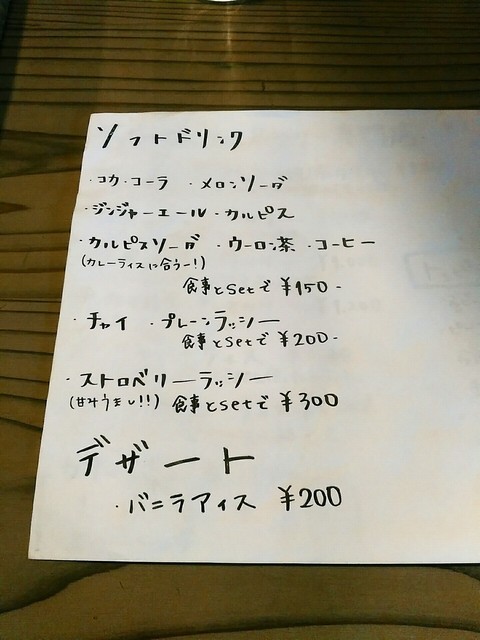 ソフトドリンク
・コカ・コーラ ・メロンソーダ
・ジンジャーエール・カルピス
・カルピスソーダ ・ウーロン茶 ・コーヒー
(カレーライスに合うー!)
食事とsetで ¥150-
・チャイ ・プレーンラッシー
食事とsetで ¥200-
・ストロベリーラッシー
(甘くてうまし!!) 食事とsetで ¥300
デザート
・バニラアイス ¥200